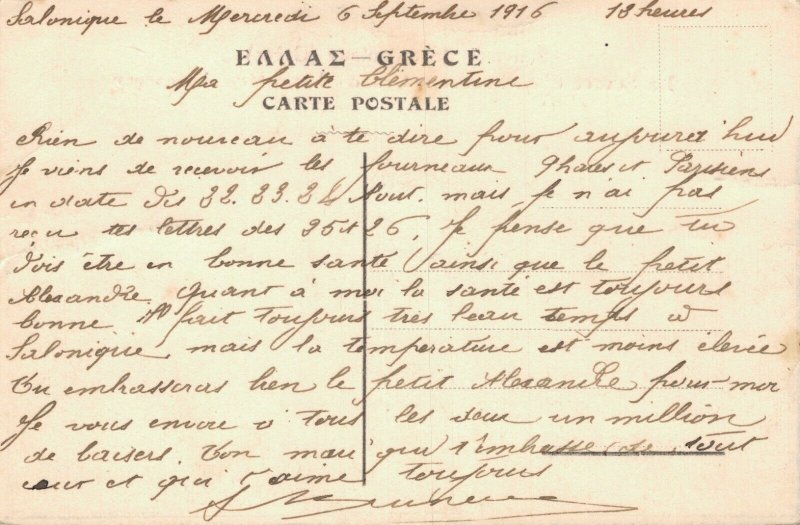 Salonique le Mercredi 6 Septembre 1916 18 heures
ΕΛΛΑΣ — GRÈCE
Ma petite Clémentine
CARTE POSTALE
Rien de nouveau à te dire pour aujourd'hui
Je viens de recevoir les journeaux Phares et Parisiens
en date des 22. 23. 24 Aout. mais je n'ai pas
reçu tes lettres des 25 et 26. Je pense que tu
dois être en bonne santé ainsi que le petit
Alexandre. Quant à moi la santé est toujours
bonne. Il fait toujours très beau temps à
Salonique, mais la température est moins élevée
Tu embrasseras bien le petit Alexandre pour moi
Je vous envoie à tous les deux un million
de baisers. Ton mari qui t'embrasse de tout
cœur et qui t'aime toujours